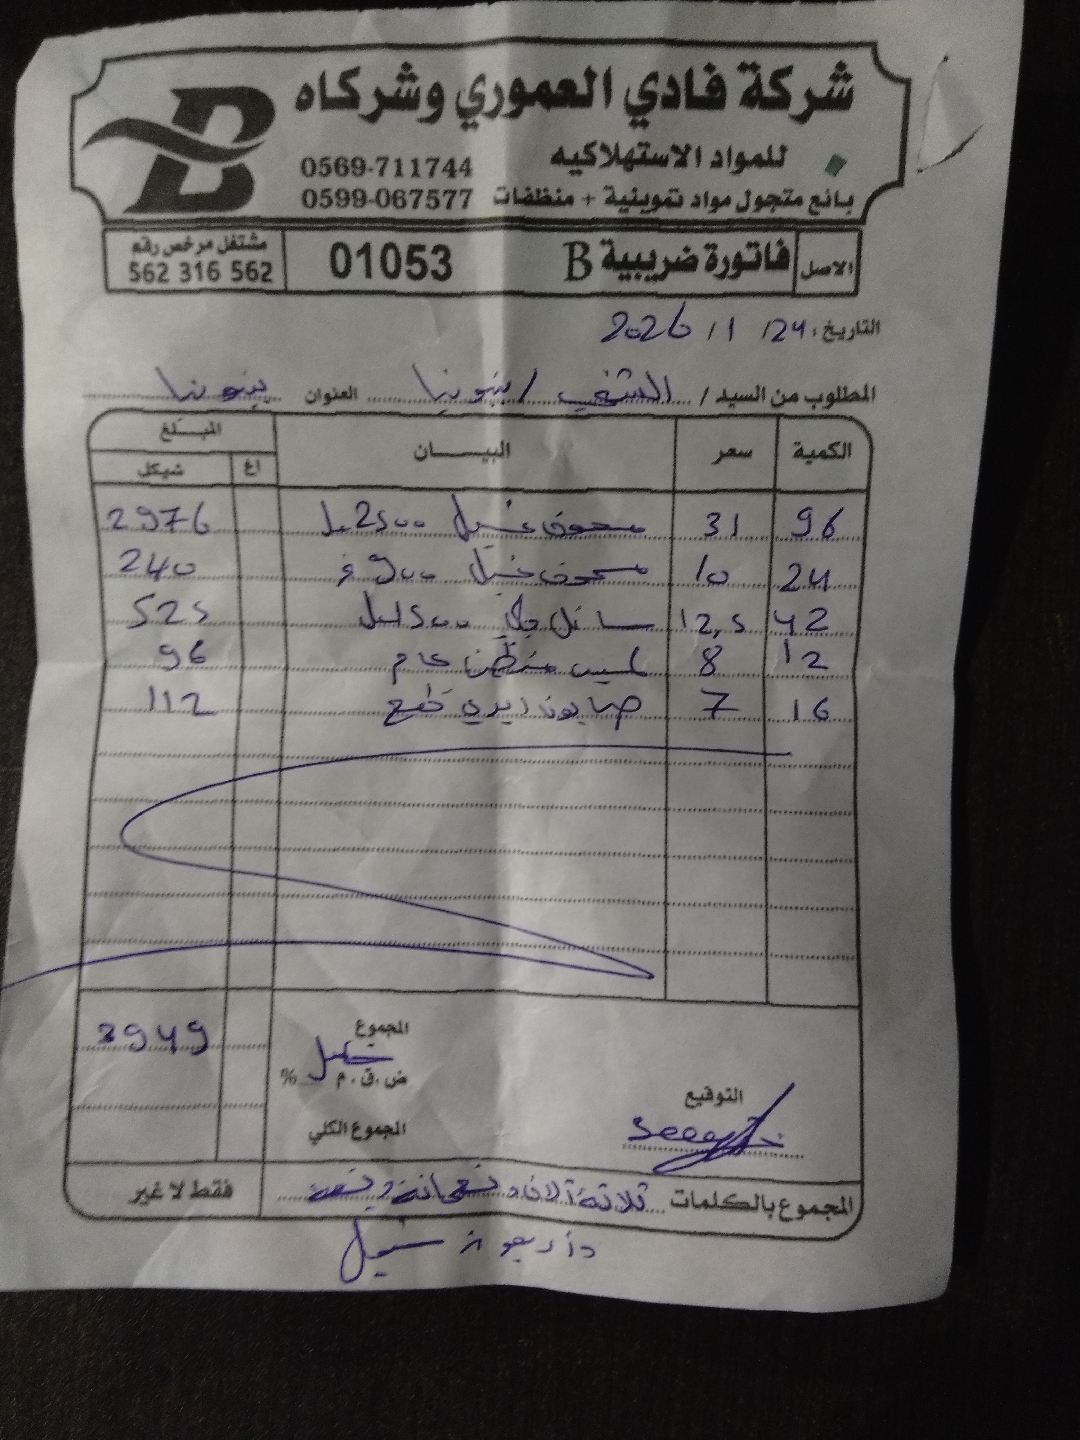 شركة فادي العموري وشركاه
للمواد الاستهلاكيه
0569-711744
بائع متجول مواد تموينية + منظفات
0599-067577
الاصل فاتورة ضريبية B 01053 مشتغل مرخص رقم 562 316 562
التاريخ: 24 / 1 / 2026
المطلوب من السيد / الشفي / بينونيا العنوان بينونيا
الكمية سعر البيـــــان المبـــلغ
اغ شيكل
96 31 مسحوق غسيل 2500 مل 2976
24 10 مسحوق غسيل 900 غ 240
42 12,5 سائل جلي 525
12 8 منظف عام 96
16 7 صابون ايدي قطع 112
المجموع 3949
شيكل
ض.ق.م %
المجموع الكلي
التوقيع
المجموع بالكلمات ثلاثة آلاف وتسعمائة وتسعة فقط لا غير
واربعون شيكل